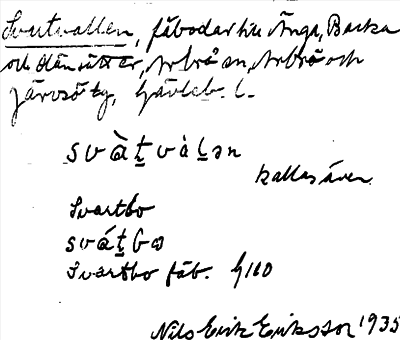 Svartvallen, fäbodar till Änga, Backa
och Hänsätter, Arbrå sn, Arbrå och
Järvsö tg, Gävleb. l.
svàt̲vàl̲ən
kallas även
Svartbo
svát̲bω
Svartbo fäb. G110
Nils Erik Eriksson 1935